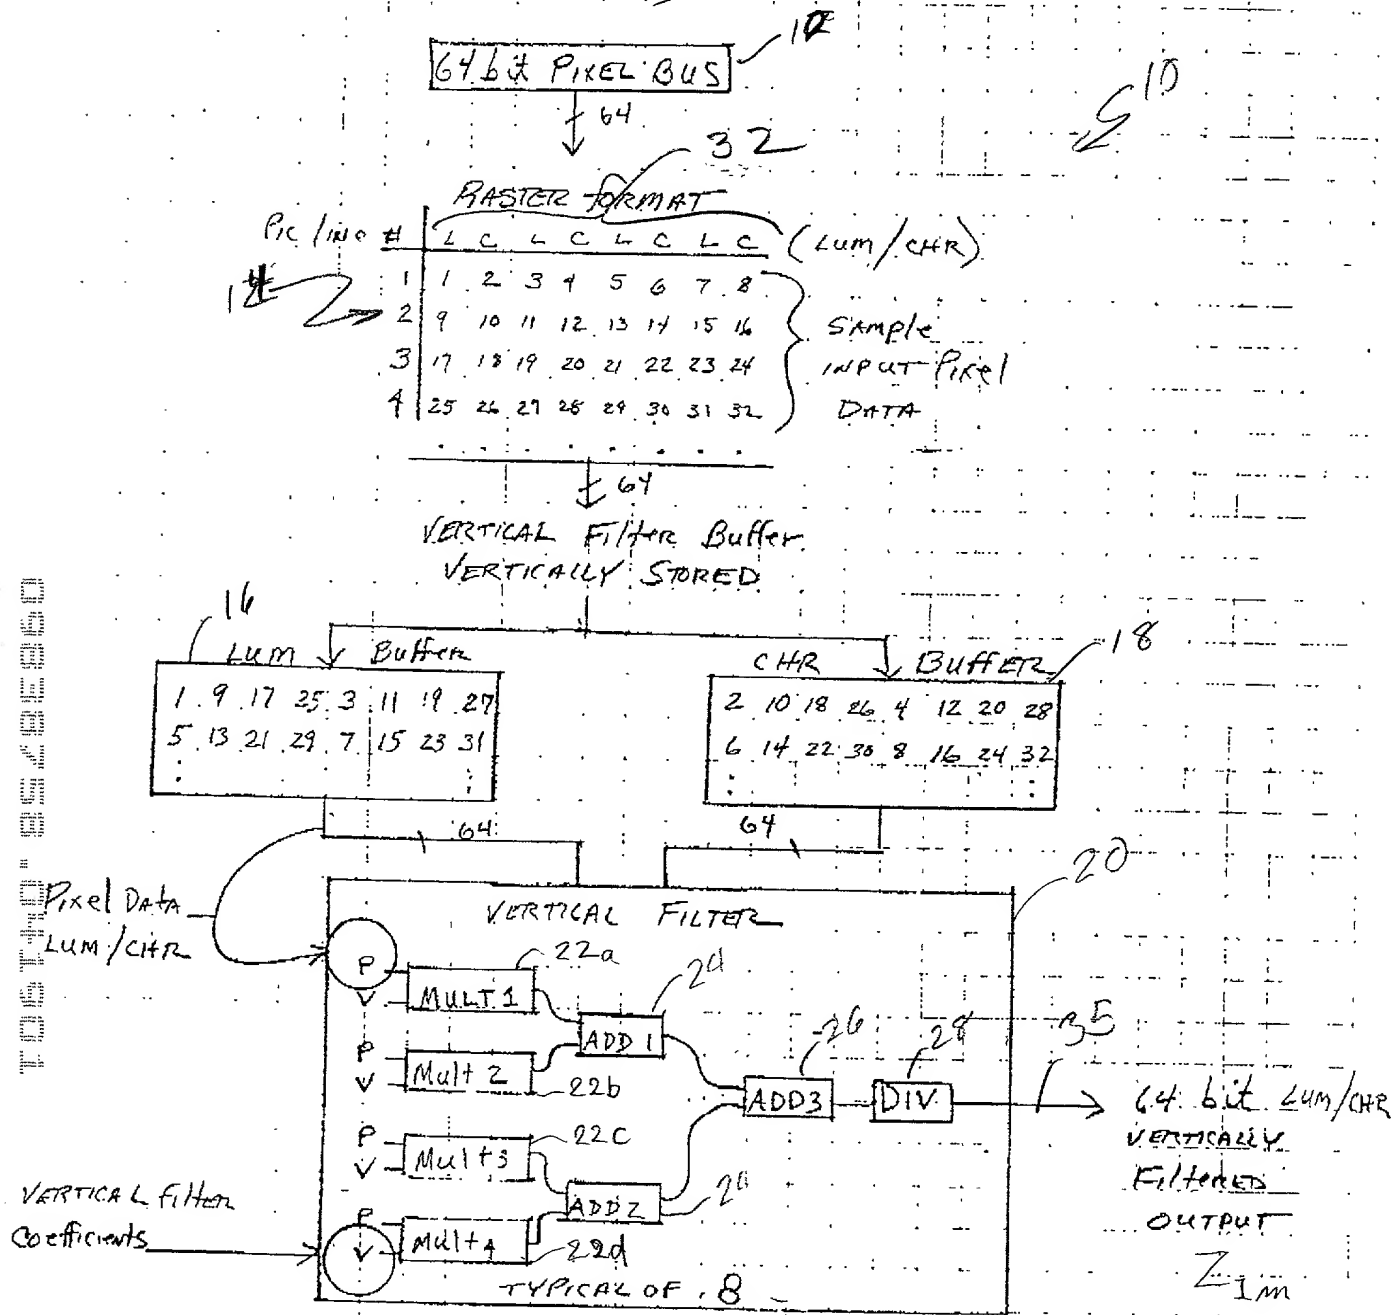 12
64 bit PIXEL BUS
64
10
32
RASTER FORMAT
PIC/ # L C L C L C L C (LUM/CHR)
1 1 2 3 4 5 6 7 8
14
2 9 10 11 12 13 14 15 16
3 17 18 19 20 21 22 23 24
4 25 26 27 28 29 30 31 32
SAMPLE
INPUT PIXEL
DATA
64
VERTICAL Filter Buffer
VERTICALLY STORED
16
LUM Buffer
1 9 17 25 3 11 19 27
5 13 21 29 7 15 23 31
CHR BUFFER
18
2 10 18 26 4 12 20 28
6 14 22 30 8 16 24 32
64
64
20
Pixel Data
LUM/CHR
VERTICAL FILTER
P
V
MULT 1
22a
P
V
Mult 2
22b
ADD 1
P
V
Mult 3
22c
ADD 2
P
V
Mult 4
22d
ADD3
26
DIV
28
35
64 bit LUM/CHR
VERTICALLY
Filtered
OUTPUT
VERTICAL Filter
Coefficients
TYPICAL OF 8